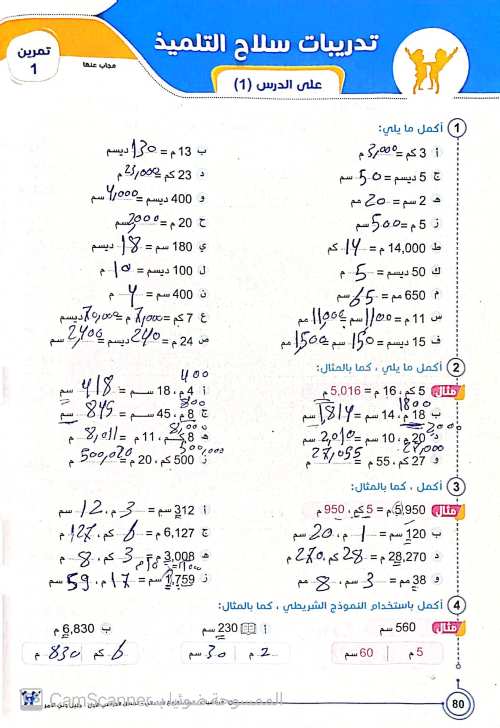 تدريبات سلاح التلميذ
تمرين 1
مجاب عنها
على الدرس (1)
1 أكمل ما يلي:
أ 3 كم = 3,000 م
ب 13 م = 130 ديسم
ج 5 ديسم = 50 سم
د 23 كم = 23,000 م
هـ 2 سم = 20 مم
و 400 ديسم = 4,000 سم
ز 5 م = 500 سم
ح 20 م = 2,000 سم
ط 14,000 م = 14 كم
ي 180 سم = 18 ديسم
ك 50 ديسم = 5 م
ل 100 ديسم = 10 م
م 650 مم = 65 سم
ن 400 سم = 4 م
س 11 م = 1100 سم = 11000 مم
ع 7 كم = 7,000 م = 70,000 ديسم
ف 15 ديسم = 150 سم = 1500 مم
ص 24 م = 240 ديسم = 2,400 سم
2 أكمل ما يلي ، كما بالمثال:
400
مثال 5 كم ، 16 م = 5,016 م
أ 4 م ، 18 سم = 418 سم
1800
800
ب 18 م ، 14 سم = 1,814 سم
ج 8 م ، 45 سم = 845 سم
2000
8,000
د 20 م ، 10 سم = 2,010 سم
هـ 8 كم ، 11 م = 8,011 م
27,000
و 27 كم ، 55 م = 27,055 م
ز 500 كم ، 20 م = 500,020 م
3 أكمل ، كما بالمثال:
مثال 5,950 م = 5 كم ، 950 م
أ 312 سم = 3 م ، 12 سم
ب 120 سم = 1 م ، 20 سم
ج 6,127 م = 6 كم ، 127 م
د 28,270 م = 28 كم ، 270 م
هـ 3,008 م = 3 كم ، 8 م
و 38 مم = 3 سم ، 8 مم
ز 1,759 سم = 17 م ، 59 سم
4 أكمل باستخدام النموذج الشريطي ، كما بالمثال:
مثال 560 سم
أ 230 سم
ب 6,830 م
5 م 60 سم
2 م 30 سم
6 كم 830 م
80
الممسوحة ضوئيا بـ CamScanner